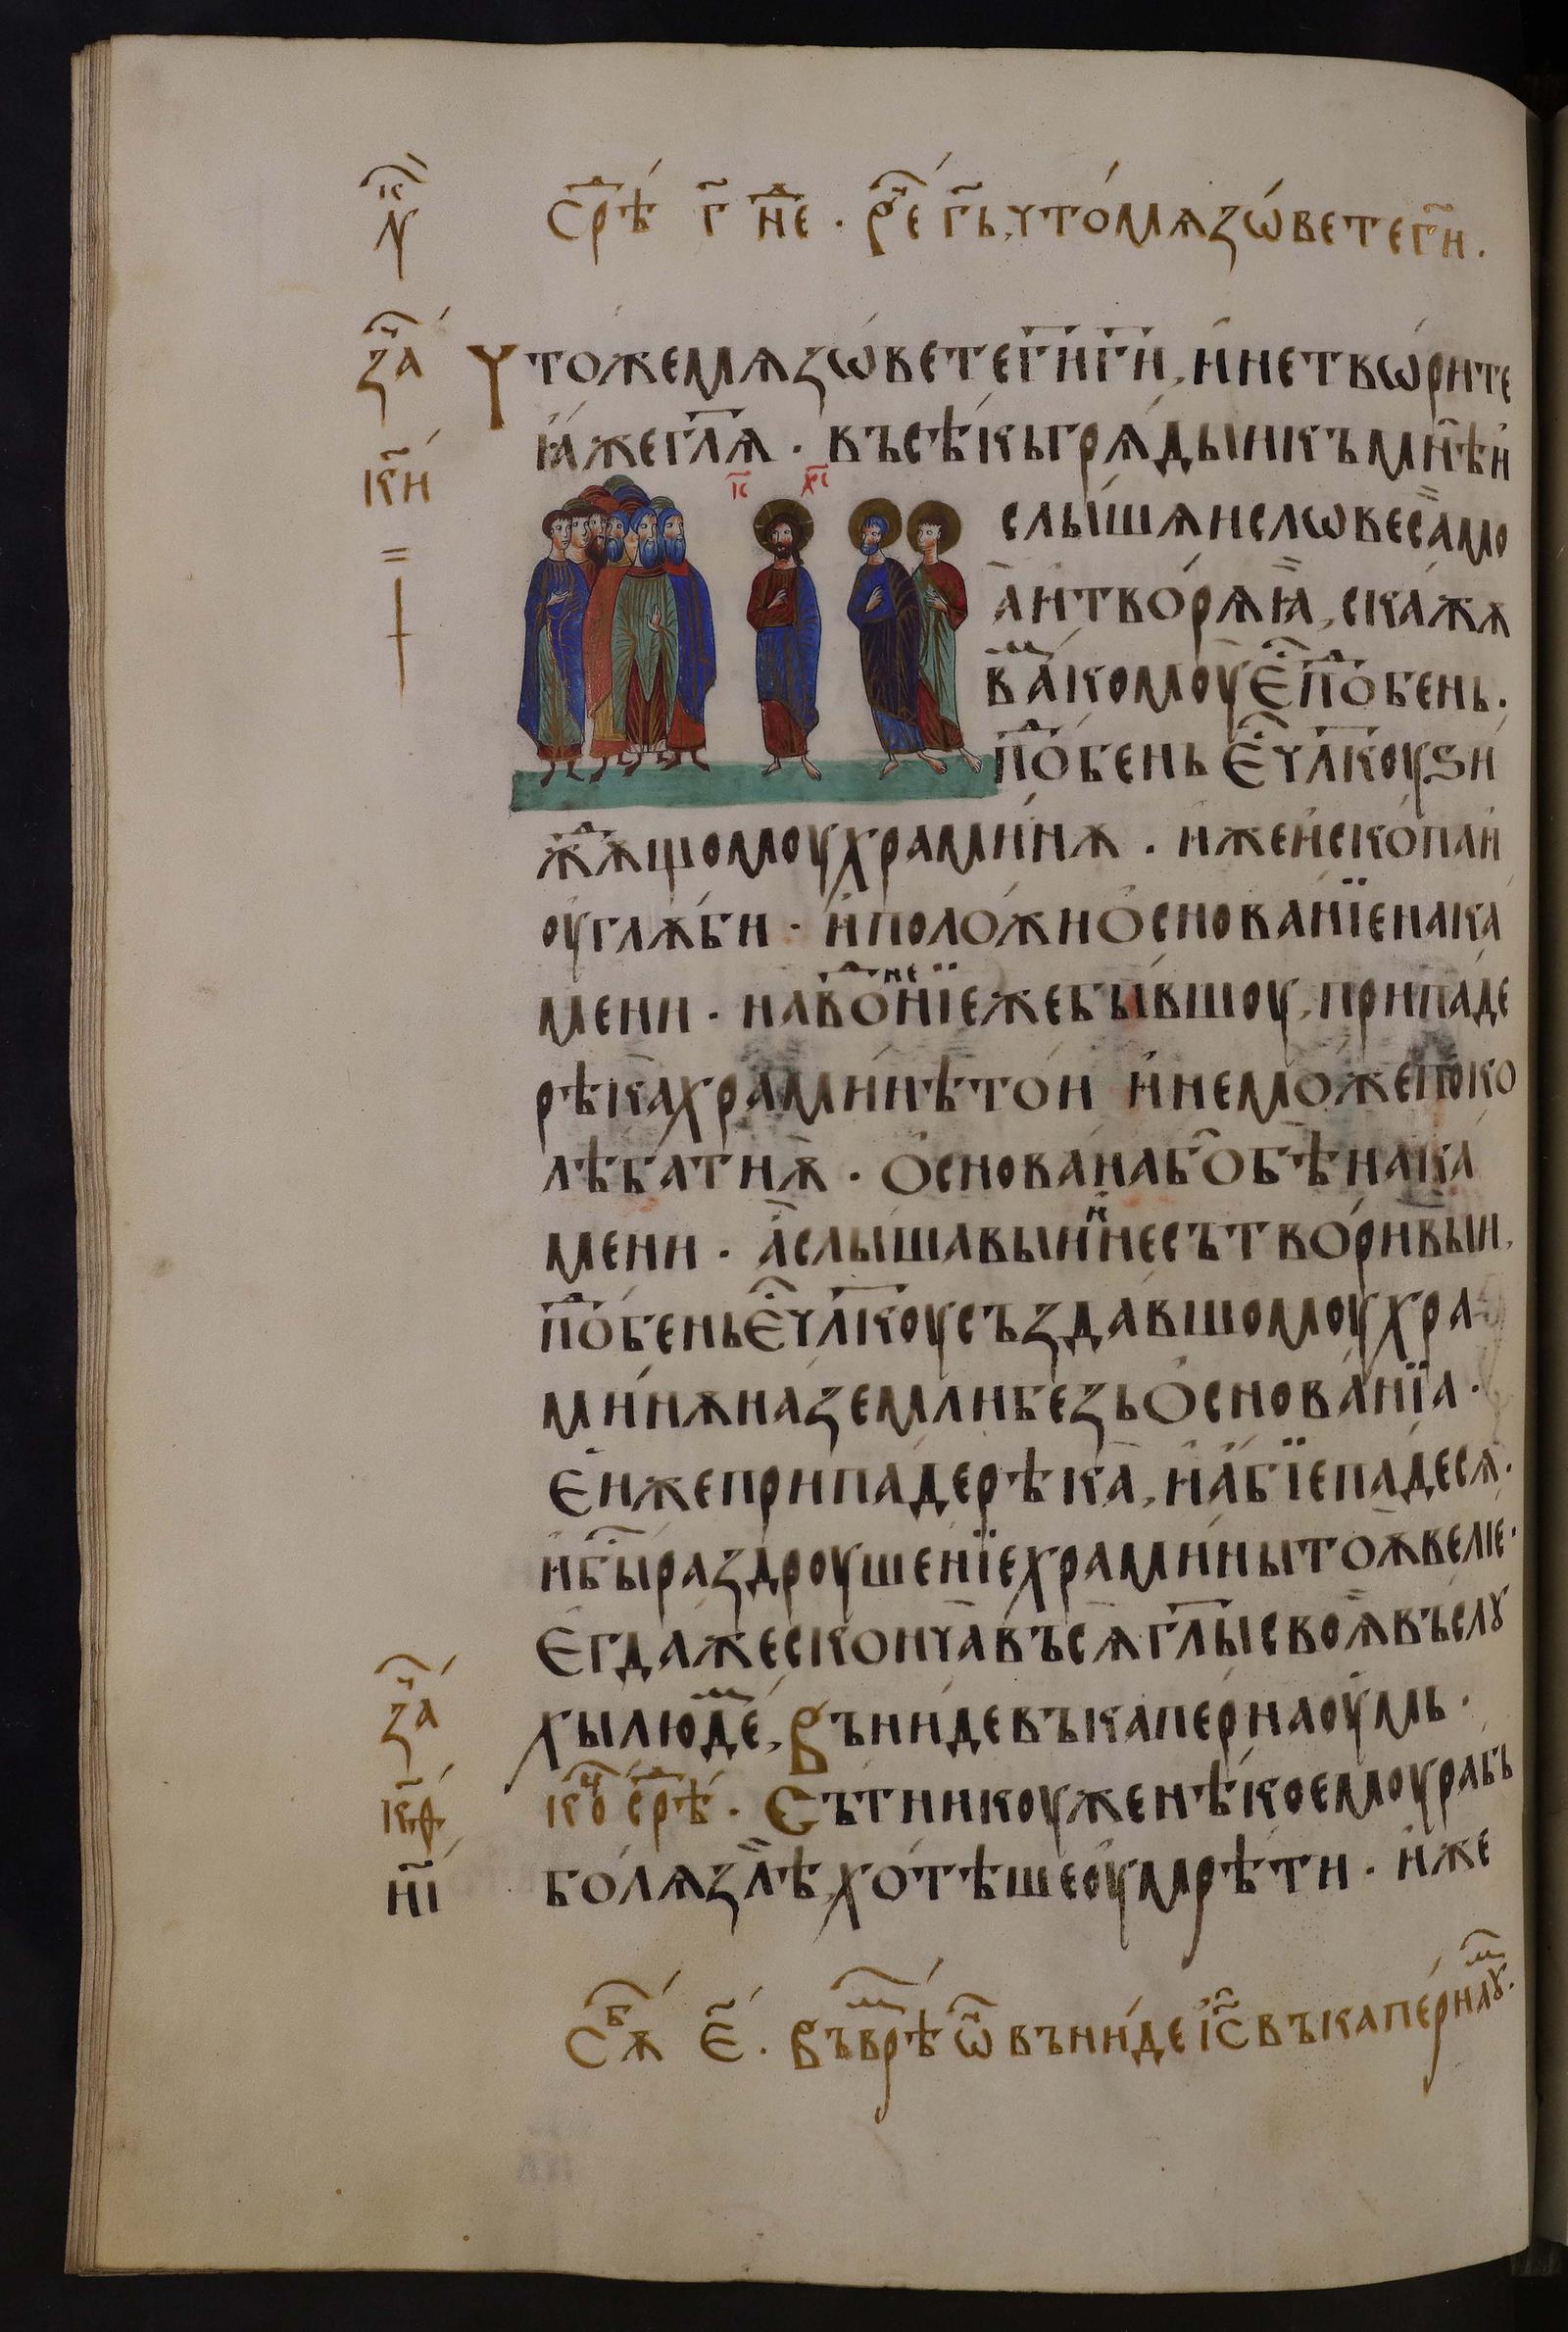 Срⷣѣ г҃ нⷣе · Рⷱ҇е г҃ь, что́ мѧ зѡ́вете г҃и ·
Что́же мѧ зѡ́вете г҃и г҃и, и҆ не твѡ́рите
ꙗ҆́же гл҃ѧ · въсѣ́кь грѧды́и къ мн҃ѣ и҆
слы́шѧи словеса̀ мо
а҆̀ и҆ тво́рѧ ꙗ҆̀, скажѫ
ваⷨ комоу є҆ⷭ҇ поⷣбень ·
поⷣбень є҆ⷭ҇ чл҃коу ѕи
жⷣѫщомоу храми́нѫ · и҆́же и҆скопа и҆
оу҆глѫ́би · и҆ положи о҆снова́нїе на ка
мени · наво́ⷣненїе же бы́вшоу, припаде
рѣка̀ храми́нѣ то́и и҆ не може поко
лѣбати ѫ҆̀ · о҆снована бо бѣ на ка
мени · а҆ слы́шавыи и не сътво́ривыи,
поⷣбень є҆ⷭ҇ чл҃коу създавшомоу хра
ми́нѫ на земли безь о҆снова́нїа ·
Е҆́иже припаде рѣка̀, и҆ а҆́бїе падесѧ ·
и҆ бы́ⷭ҇ раздроуше́нїе храми́ны тоѫ̀ велїе ·
Е҆гда же сконча̀ въсѧ гл҃ы своѧ̀ въ слꙋ
хы люⷣеⷨ, Въни́де въ капернаоу́мь ·
коⷰ҇ срⷣѣ · Сътникоу же нѣ́коемоу рабь
болѧ зл̀ѣ, хо́тѣше оу҆мрѣ́ти · и҆́же
Сѫⷠ҇ є҃ · Въ врѣⷨ ѡ҆ⷩ҇ въни́де і҆с҃ въ капе́рнаꙋⷨ ·
іс
н҃
заⷱ҇
к҃и
заⷱ҇
к҃ѳ
н҃і
І҃С Х҃С